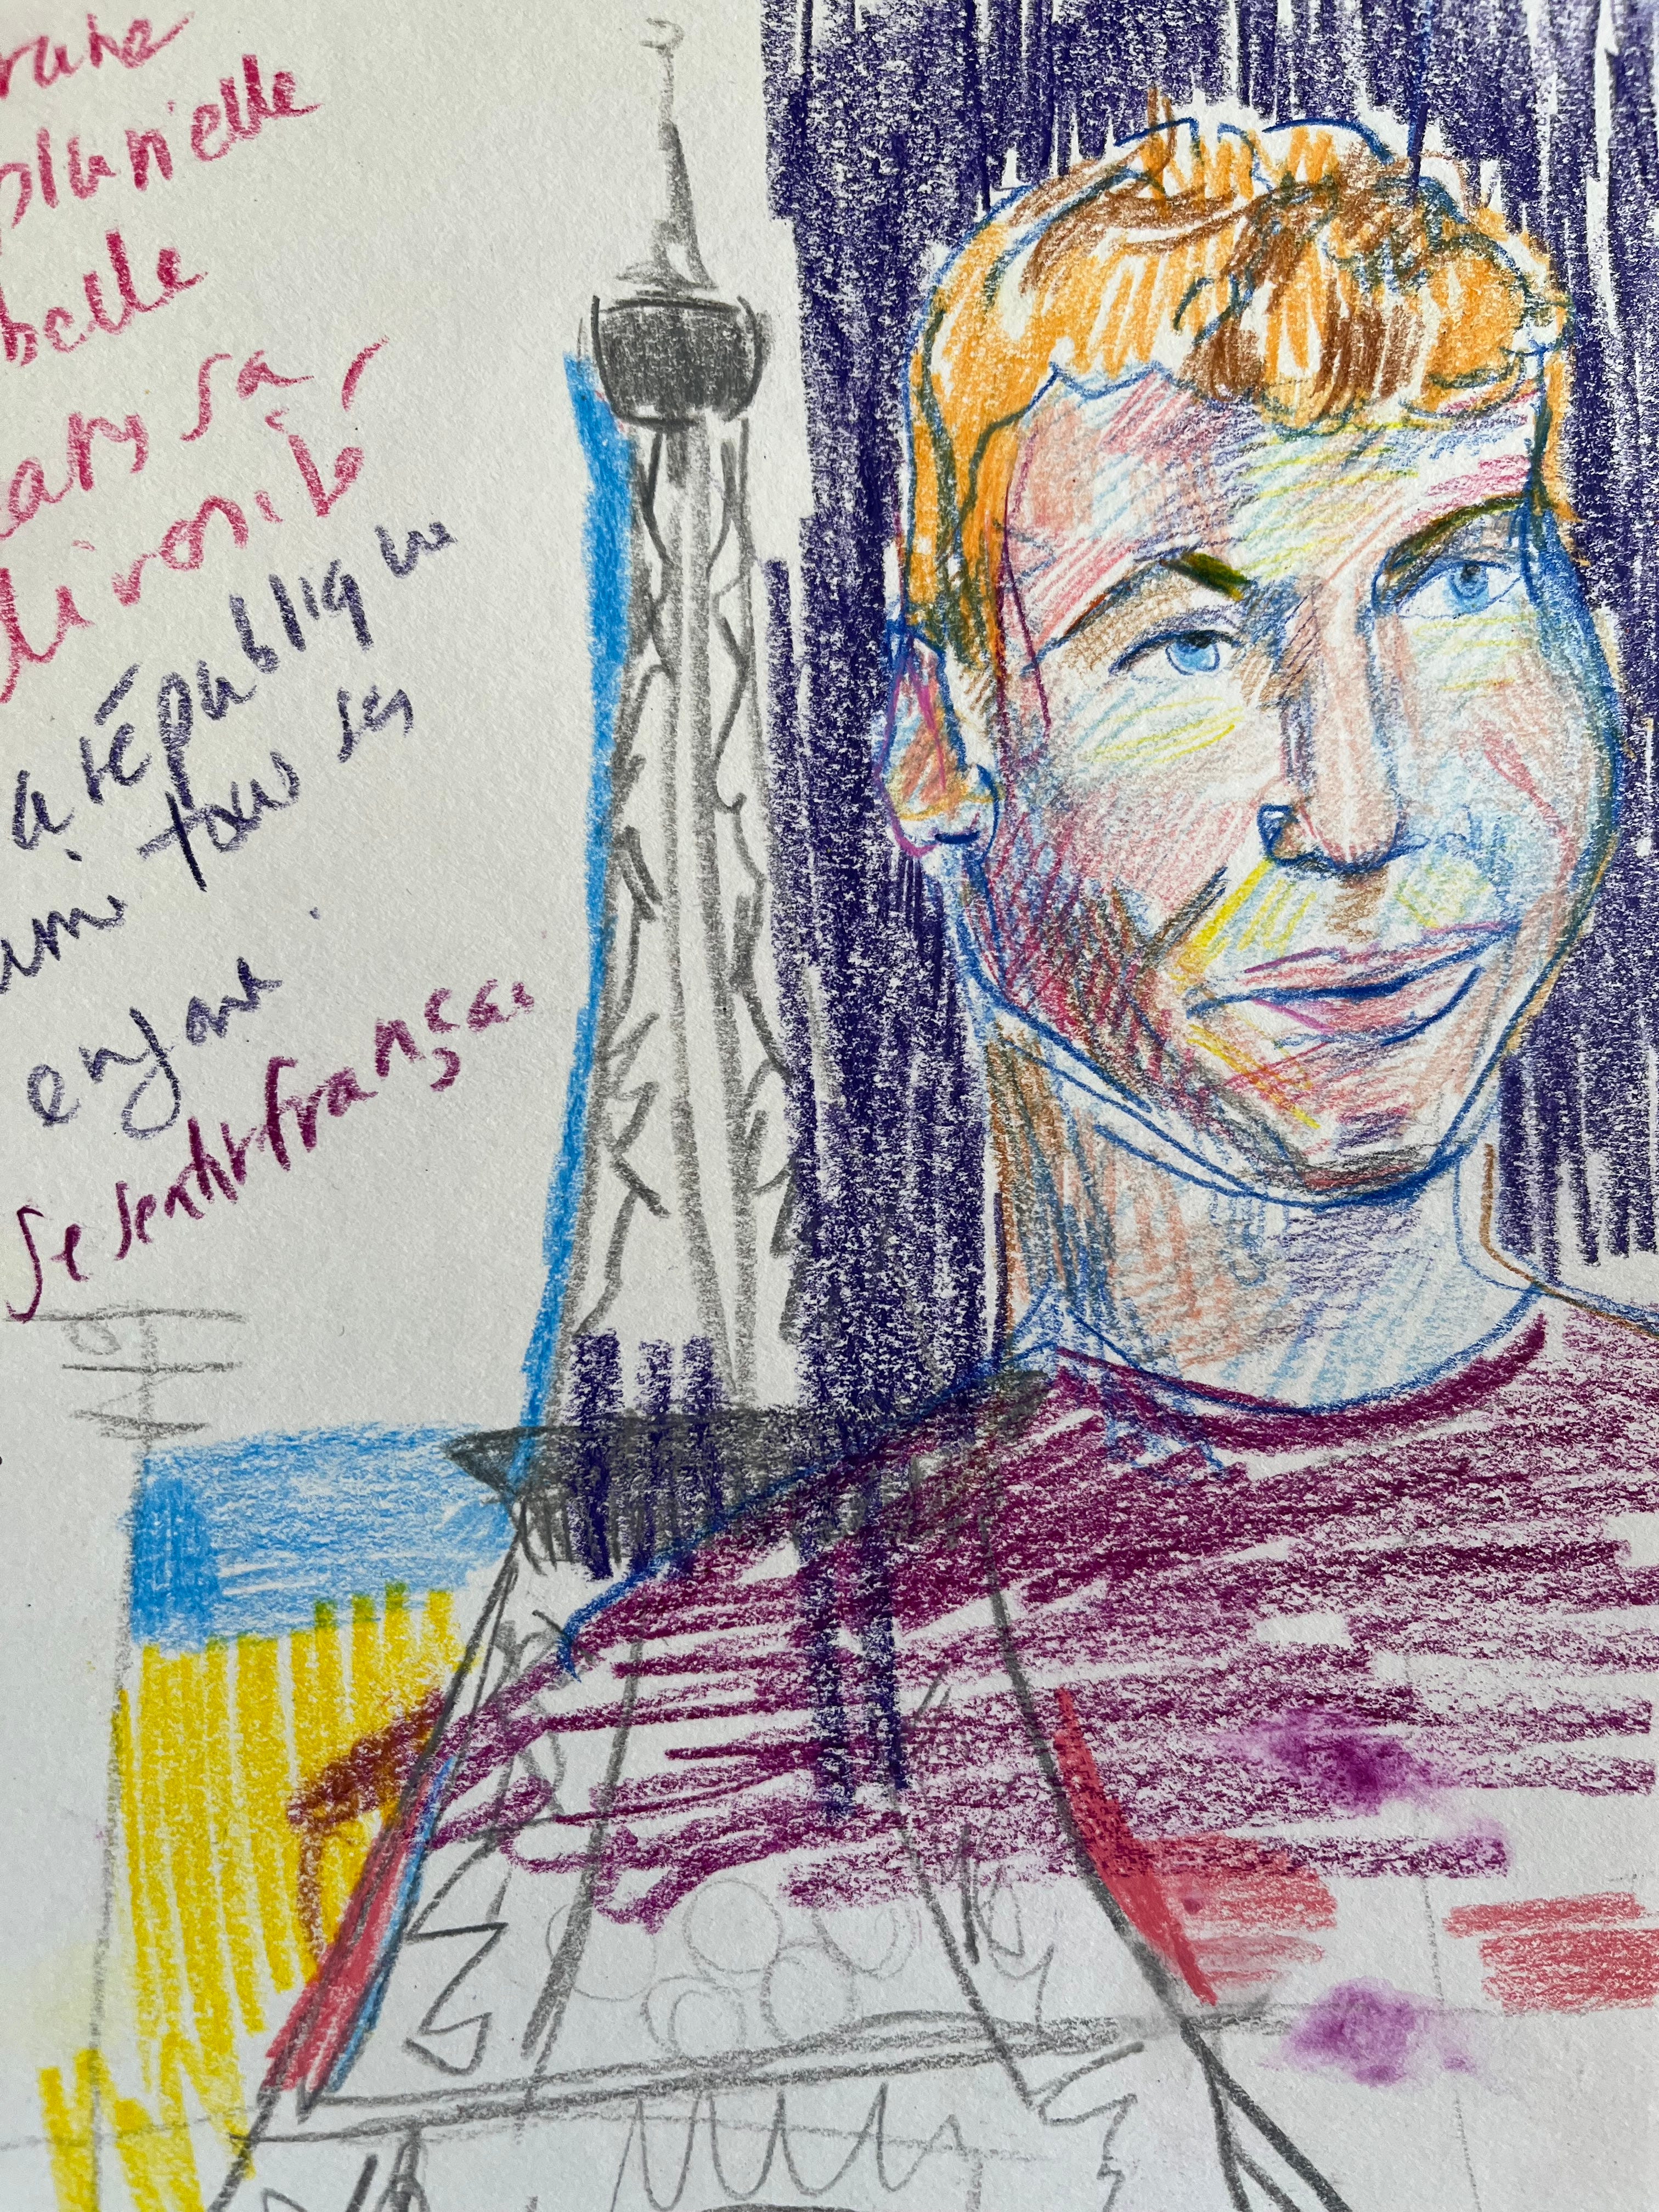 plurielle
belle
dans sa
diversité
a république
uni tous ses
enfant.
se sentir français